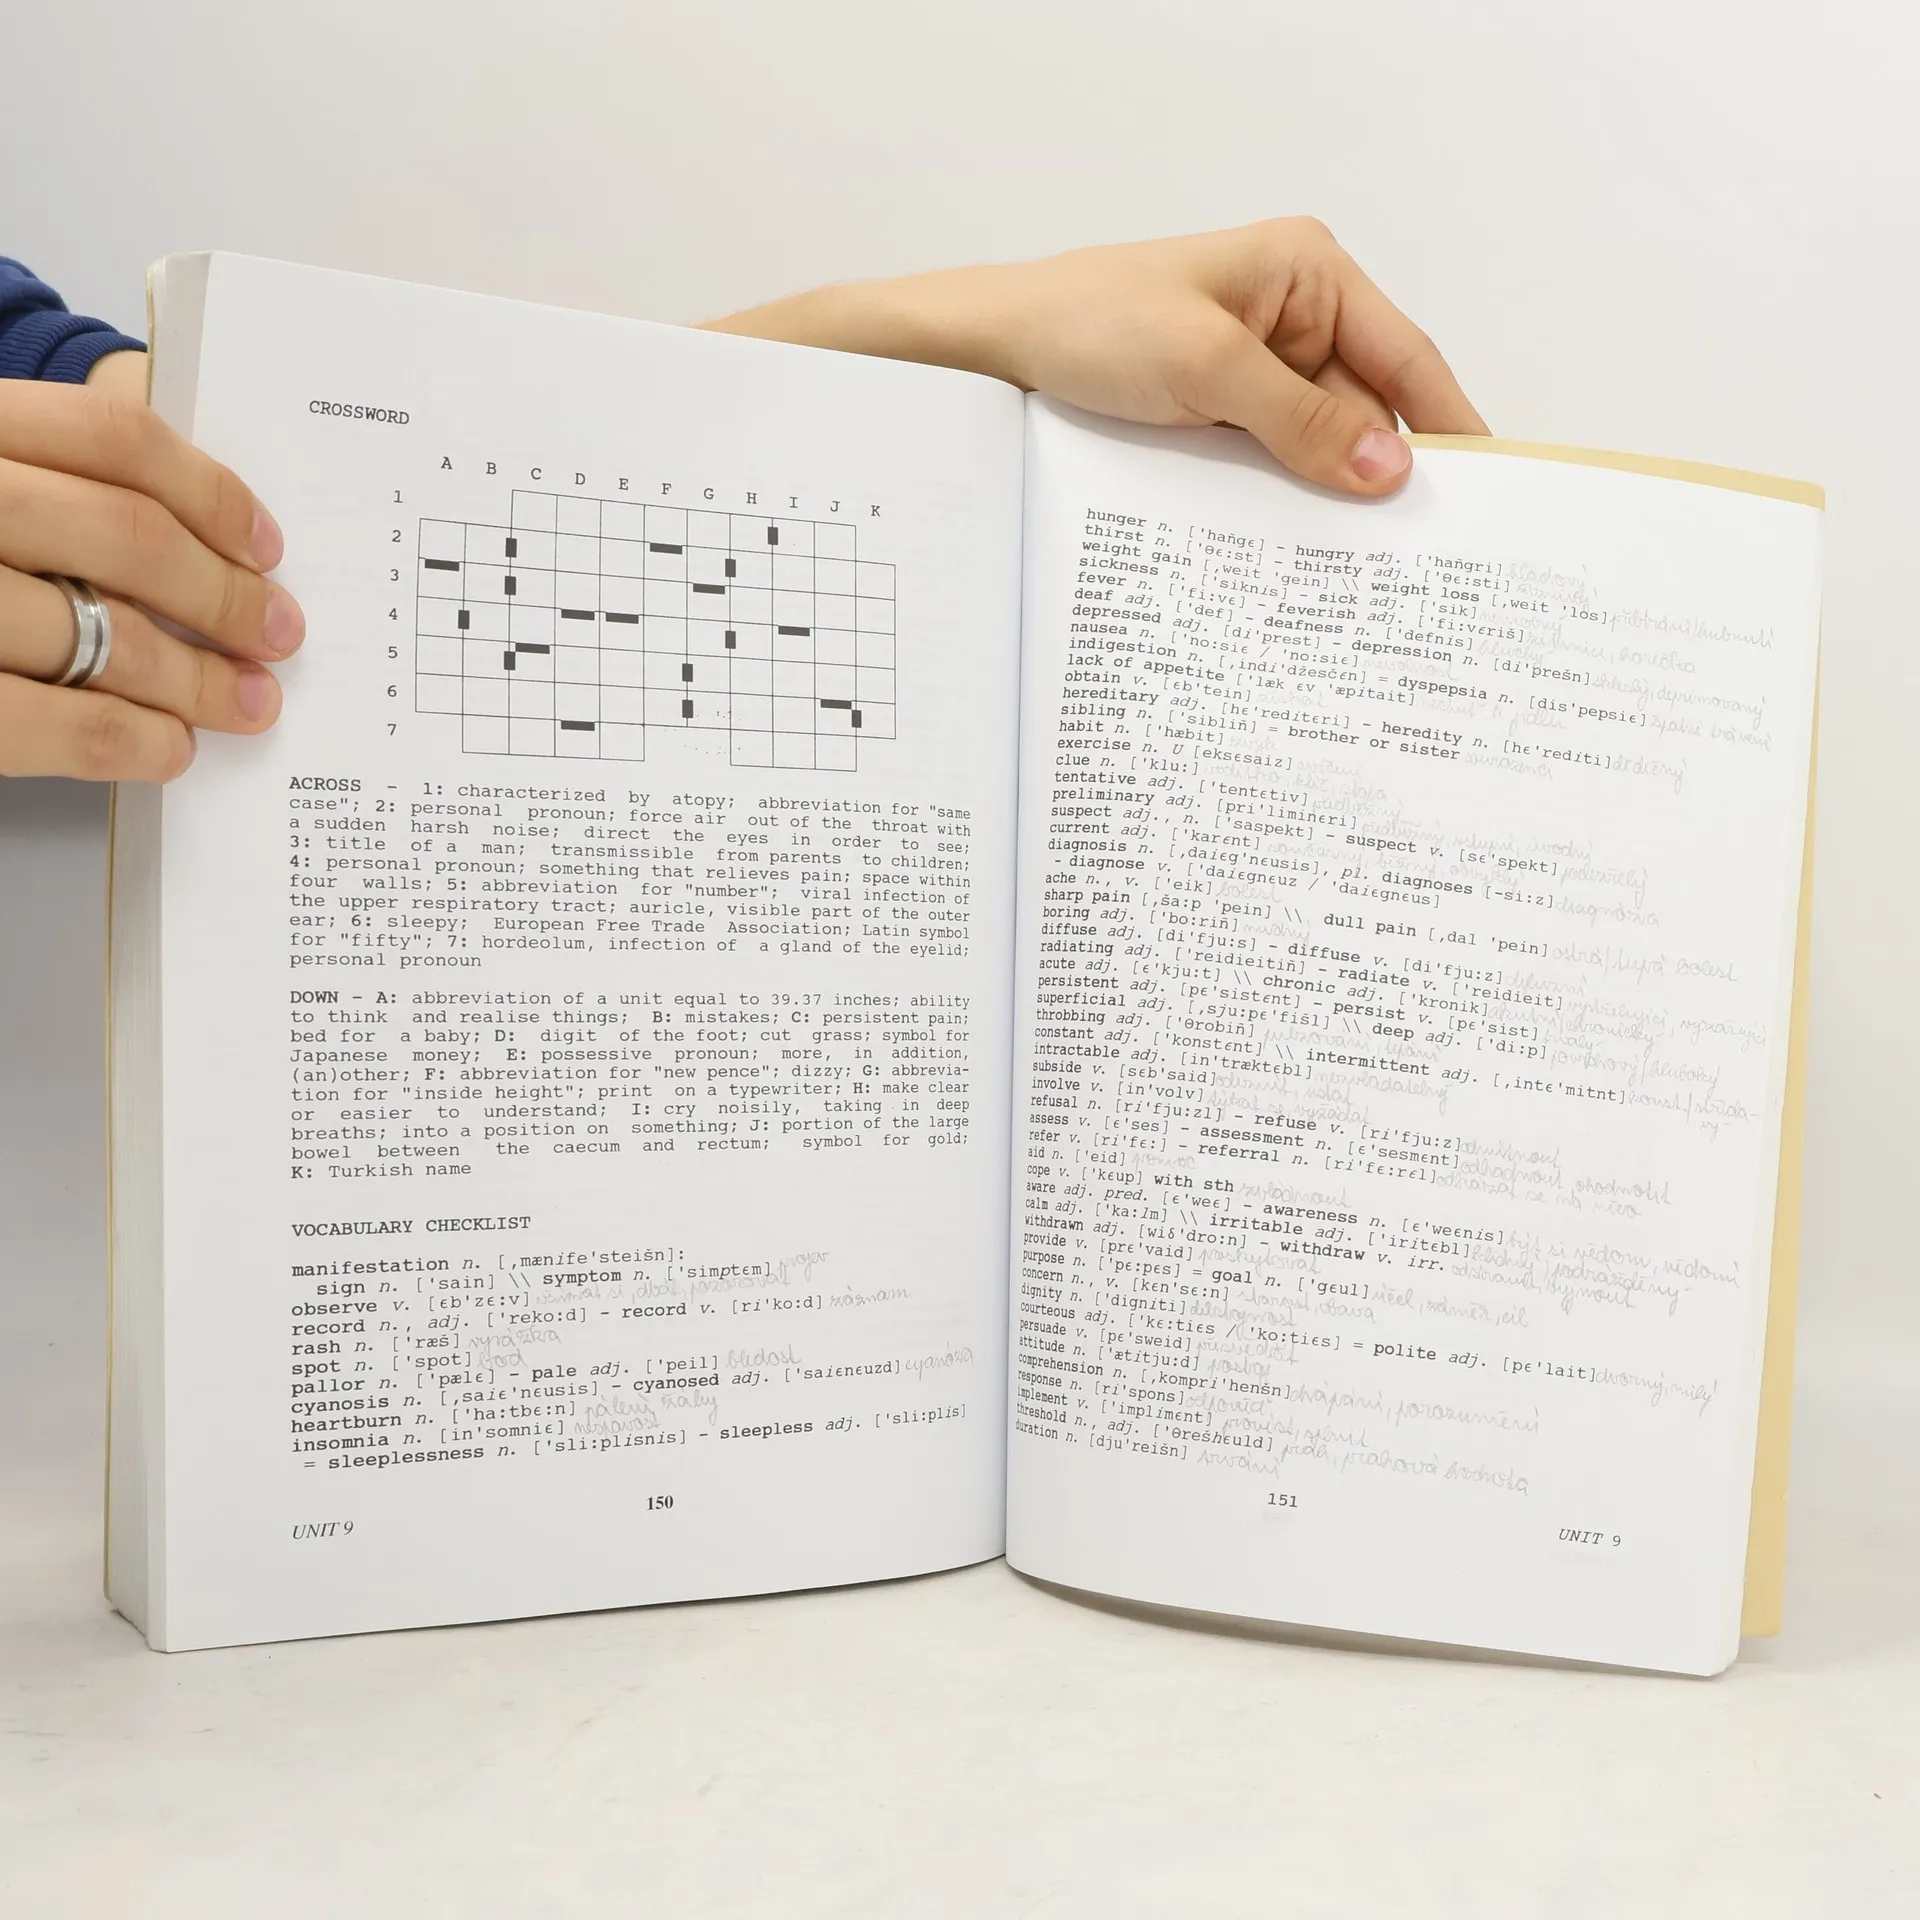 CROSSWORD
A B C D E F G H I J K
1
2
3
4
5
6
7
ACROSS - 1: characterized by atopy; abbreviation for "same
case"; 2: personal pronoun; force air out of the throat with
a sudden harsh noise; direct the eyes in order to see;
3: title of a man; transmissible from parents to children;
4: personal pronoun; something that relieves pain; space within
four walls; 5: abbreviation for "number"; viral infection of
the upper respiratory tract; auricle, visible part of the outer
ear; 6: sleepy; European Free Trade Association; Latin symbol
for "fifty"; 7: hordeolum, infection of a gland of the eyelid;
personal pronoun
DOWN - A: abbreviation of a unit equal to 39.37 inches; ability
to think and realise things; B: mistakes; C: persistent pain;
bed for a baby; D: digit of the foot; cut grass; symbol for
Japanese money; E: possessive pronoun; more, in addition,
(an)other; F: abbreviation for "new pence"; dizzy; G: abbrevia-
tion for "inside height"; print on a typewriter; H: make clear
or easier to understand; I: cry noisily, taking in deep
breaths; into a position on something; J: portion of the large
bowel between the caecum and rectum; symbol for gold;
K: Turkish name
VOCABULARY CHECKLIST
manifestation n. [,mænife'steišn]: projev
sign n. ['sain] \\ symptom n. ['simptɛm]
observe v. [ɛb'zɛ:v] všímat si, dbát, pozorovat
record n., adj. ['reko:d] - record v. [ri'ko:d] záznam
rash n. ['ræš] vyrážka
spot n. ['spot] bod
pallor n. ['pælɛ] - pale adj. ['peil] bledost
cyanosis n. [,saiɛ'nɛusis] - cyanosed adj. ['saiɛnɛuzd] cyanóza
heartburn n. ['ha:tbɛ:n] pálení žáhy
insomnia n. [in'somniɛ] nespavost
= sleeplessness n. ['sli:plisnis] - sleepless adj. ['sli:plis]
150
UNIT 9
hunger n. ['hañgɛ] - hungry adj. ['hañgri] hladový
thirst n. ['θɛ:st] - thirsty adj. ['θɛ:sti] žíznivý
weight gain [,weit 'gein] \\ weight loss [,weit 'los] přibírání/hubnutí
sickness n. ['siknis] - sick adj. ['sik] nemocný
fever n. ['fi:vɛ] - feverish adj. ['fi:vɛriš] zimnice, horečka
deaf adj. ['def] - deafness n. ['defnis] hluchý
depressed adj. [di'prest] - depression n. [di'prešn] skleslý, deprimovaný
nausea n. ['no:siɛ / 'no:siɛ] nevolnost
indigestion n. [,indi'džesčɛn] = dyspepsia n. [dis'pepsiɛ] špatné trávení
lack of appetite ['læk ɛv 'æpitait] nechuť k jídlu
obtain v. [ɛb'tein] získat
hereditary adj. [hɛ'reditɛri] - heredity n. [hɛ'rediti] dědičný
sibling n. ['sibliñ] = brother or sister sourozenci
habit n. ['hæbit] zvyk
exercise n. U [eksɛsaiz] cvičení
clue n. ['klu:]
tentative adj. ['tentɛtiv] předběžný
preliminary adj. [pri'liminɛri] předběžný, úvodní
suspect adj., n. ['saspekt] - suspect v. [sɛ'spekt] podezřelý
current adj. ['karɛnt] současný, běžný, obvyklý
diagnosis n. [,daiɛg'nɛusis], pl. diagnoses [-si:z] diagnóza
- diagnose v. ['daiɛgnɛuz / 'daiɛgnɛus]
ache n., v. ['eik] bolest
sharp pain [,ša:p 'pein] \\ dull pain [,dal 'pein] ostrá/tupá bolest
boring adj. ['bo:riñ] nudný
diffuse adj. [di'fju:s] - diffuse v. [di'fju:z] difuzní
radiating adj. ['reidieitiñ] - radiate v. ['reidieit] vystřelující, vyzařující
acute adj. [ɛ'kju:t] \\ chronic adj. ['kronik] akutní/chronický
persistent adj. [pɛ'sistɛnt] - persist v. [pɛ'sist] trvalý
superficial adj. [,sju:pɛ'fišl] \\ deep adj. ['di:p] povrchový/hluboký
throbbing adj. ['θrobiñ] pulzování, tepání
constant adj. ['konstɛnt] \\ intermittent adj. [,intɛ'mitnt] konst./střída-
vý
intractable adj. [in'træktɛbl] nezvladatelný
subside v. [sɛb'said] odeznít, ustat
involve v. [in'volv] týkat se, vyžádat
refusal n. [ri'fju:zl] - refuse v. [ri'fju:z] odmítnout
assess v. [ɛ'ses] - assessment n. [ɛ'sesmɛnt] odhadnout, ohodnotit
refer v. [ri'fɛ:] - referral n. [ri'fɛ:rɛl] odkázat se na něco
aid n. ['eid] pomoc
cope v. ['kɛup] with sth zvládnout
aware adj. pred. [ɛ'weɛ] - awareness n. [ɛ'weɛnis] být si vědom, vědomí
calm adj. ['ka:lm] \\ irritable adj. ['iritɛbl] klidný, podrážděný
withdrawn adj. [wiδ'dro:n] - withdraw v. irr. odstranit, vyjmout
provide v. [prɛ'vaid] poskytovat
purpose n. ['pɛ:pɛs] = goal n. ['gɛul] účel, záměr, cíl
concern n., v. [kɛn'sɛ:n] starost, obava
dignity n. ['digniti] důstojnost
courteous adj. ['kɛ:tiɛs / 'ko:tiɛs] = polite adj. [pɛ'lait] dvorný, milý
persuade v. [pɛ'sweid] přesvědčit
attitude n. ['ætitju:d] postoj
comprehension n. [,kompri'henšn] chápání, porozumění
response n. [ri'spons] odpověď
implement v. ['implimɛnt] provést, splnit
threshold n., adj. ['θrešhɛuld] práh, prahová hodnota
duration n. [dju'reišn] trvání
151
UNIT 9